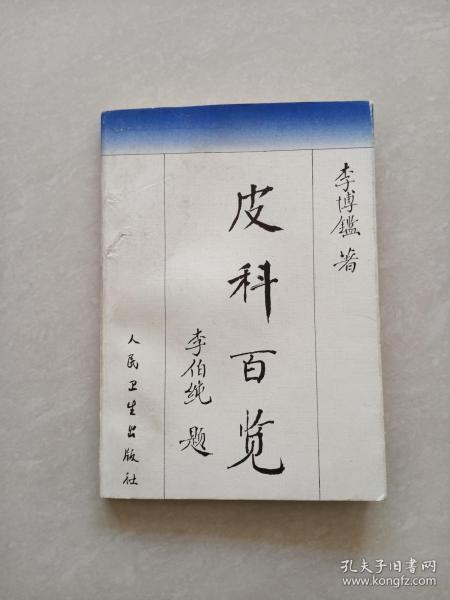 李博鑑 著
皮科百览
李伯纯 题
人民卫生出版社
孔夫子旧书网
www.kongfz.com